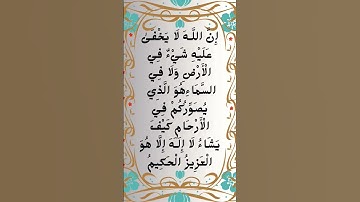 إِنَّ اللَّهَ لَا يَخْفَىٰ
عَلَيْهِ شَيْءٌ فِي
الْأَرْضِ وَلَا فِي
السَّمَاءِهُوَ الَّذِي
يُصَوِّرُكُمْ فِي
الْأَرْحَامِ كَيْفَ
يَشَاءُ لَا إِلَهَ إِلَّا هُوَ
الْعَزِيزُ الْحَكِيمُ